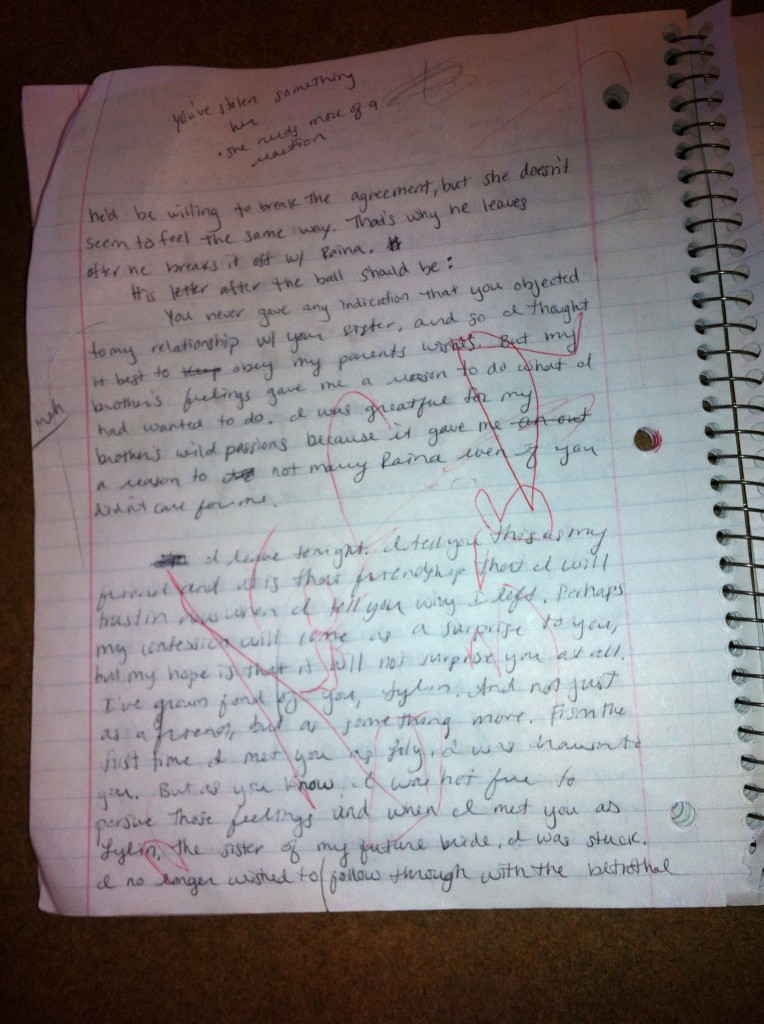 you've stolen something
her
• she needs more of a
reaction
he'd be willing to break the agreement, but she doesn't
seem to feel the same way. That's why he leaves
after he breaks it off w/ Raina.
His letter after the ball should be:
You never gave any indication that you objected
to my relationship w/ your sister, and so I thought
it best to keep obey my parents wishes. But my
brother's feelings gave me a reason to do what I
had wanted to do. I was greatful for my
brother's wild passions because it gave me an out
a reason to not marry Raina even if you
didn't care for me.
meh
I leave tonight. I tell you this as my
friend and it is that friendship that I will
trust in now when I tell you why I left. Perhaps
my confession will come as a surprise to you,
but my hope is that it will not surprise you at all.
I've grown fond of you, Lylin. And not just
as a friend, but as something more. From the
first time I met you as Lily, I was drawn to
you. But as you know, I was not free to
persue those feelings and when I met you as
Lylin, the sister of my future bride, I was stuck.
I no longer wished to follow through with the betrothal